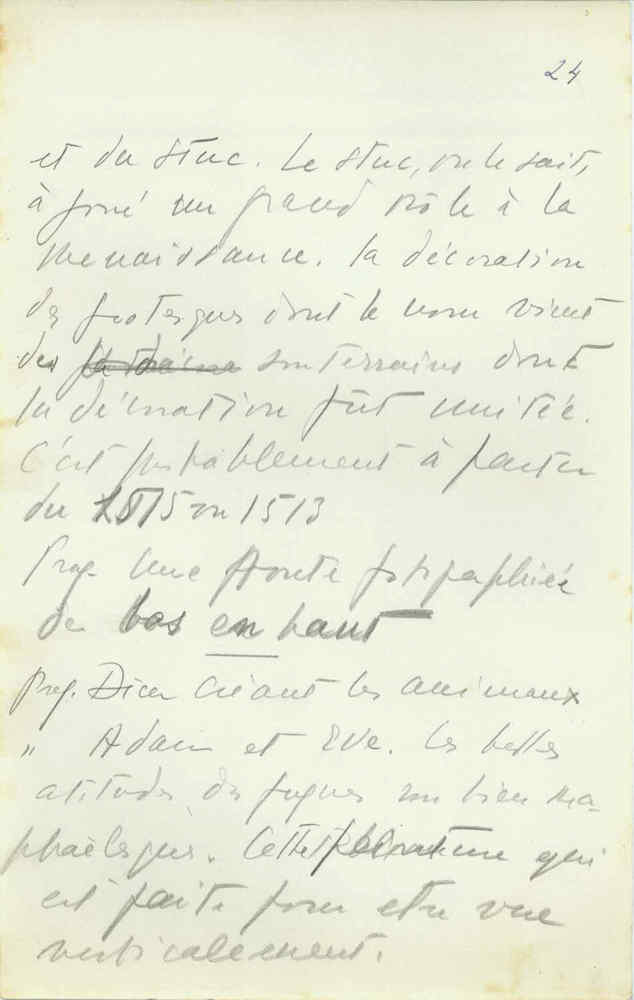 24
et du stuc. Le stuc, on le sait,
à joué un grand rôle à la
Renaissance. la décoration
des grotesques dont le nom vient
des souterrains dont
la décoration fût imitée.
C'est probablement à partir
du 1515 ou 1513
Proj. Une voute fotographiée
de bas en haut
Proj. Dieu créant les animaux
" Adam et Eve. les belles
atitudes des figures son bien Ra-
phaëlesques. Cette peinture qui
est faite pour etre vue
verticalement.